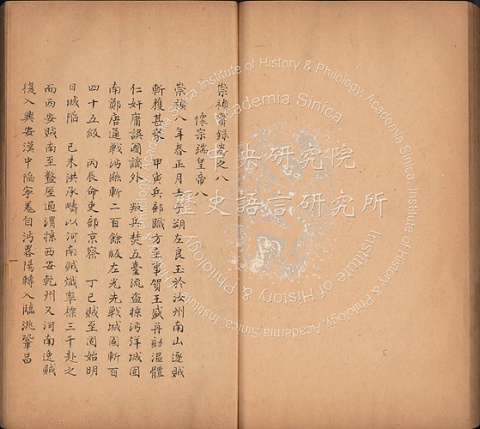 崇禎實錄卷之八
懷宗端皇帝八
崇禎八年春正月壬子朔左良玉於汝州南山逐賊
斬獲甚眾 甲寅兵部職方主事賀王盛再劾溫體
仁奸庸誤國謫外 叛兵焚五臺流盜掠沔洋城固
南鄭唐通戰沔縣斬二百餘級左光先戰城固斬百
四十五級 丙辰命吏部京察 丁巳賊至固始明
日城陷 己未洪承疇以河南賊熾率標三千赴之
而西安賊南至盩厔過渭掠西安乾州又河南逸賊
復入興安漢中陷寧羌自沔畧陽轉入臨洮鞏昌
一
中央研究院
歷史語言研究所
Institute of History & Philology, Academia Sinica